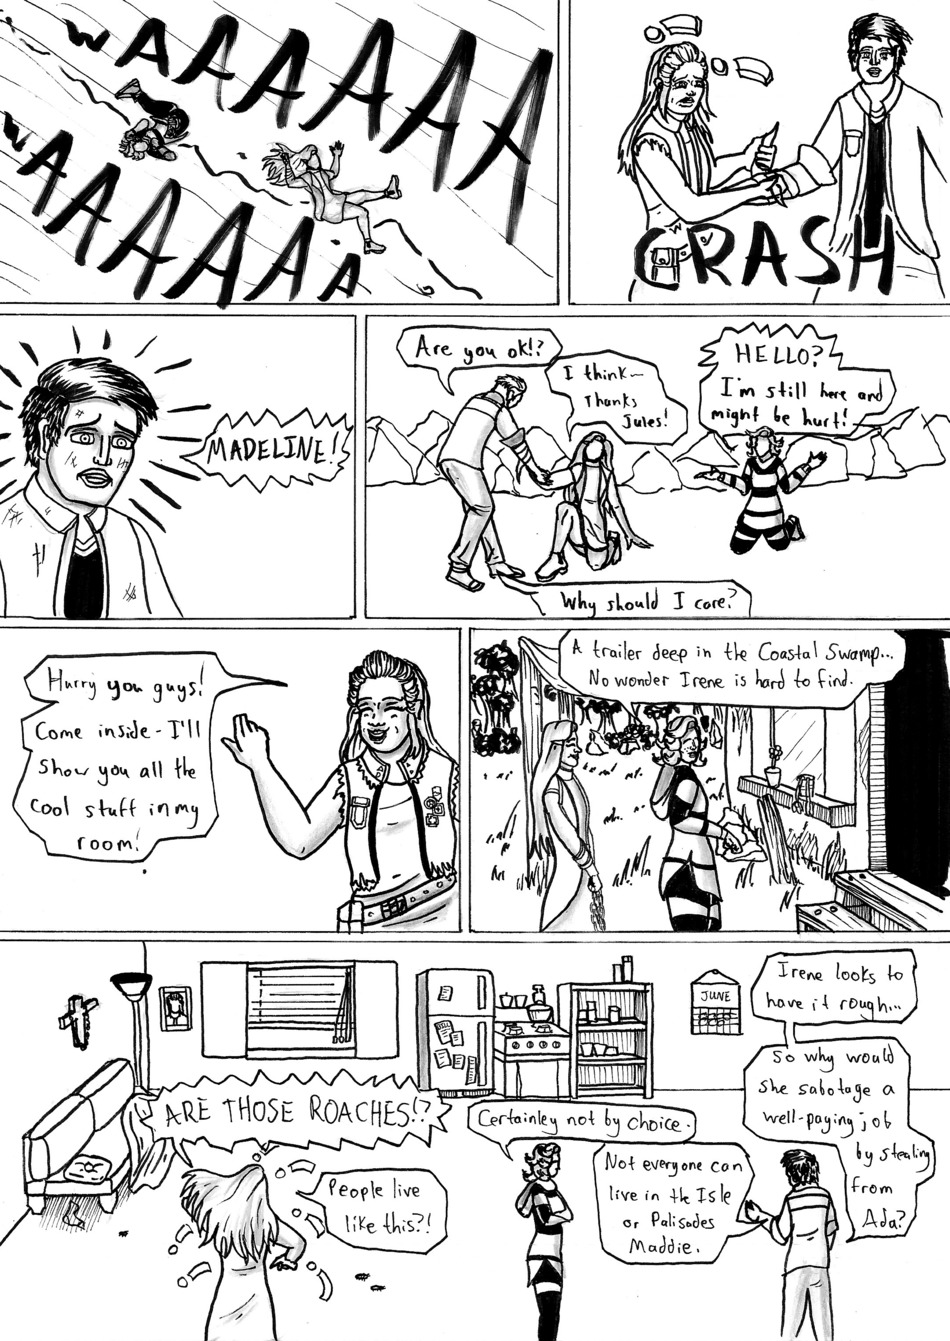 WAAAAAAA
WAAAAAAA
CRASH
MADELINE!
Are you ok!?
I think—
Thanks
Jules!
HELLO?
I'm still here and
might be hurt!
Why should I care?
Hurry you guys!
Come inside - I'll
show you all the
cool stuff in my
room!
A trailer deep in the Coastal Swamp...
No wonder Irene is hard to find.
JUNE
ARE THOSE ROACHES!?
People live
like this?!
Certainley not by choice.
Not everyone can
live in the Isle
or Palisades
Maddie.
Irene looks to
have it rough...
So why would
she sabotage a
well-paying job
by stealing
from
Ada?